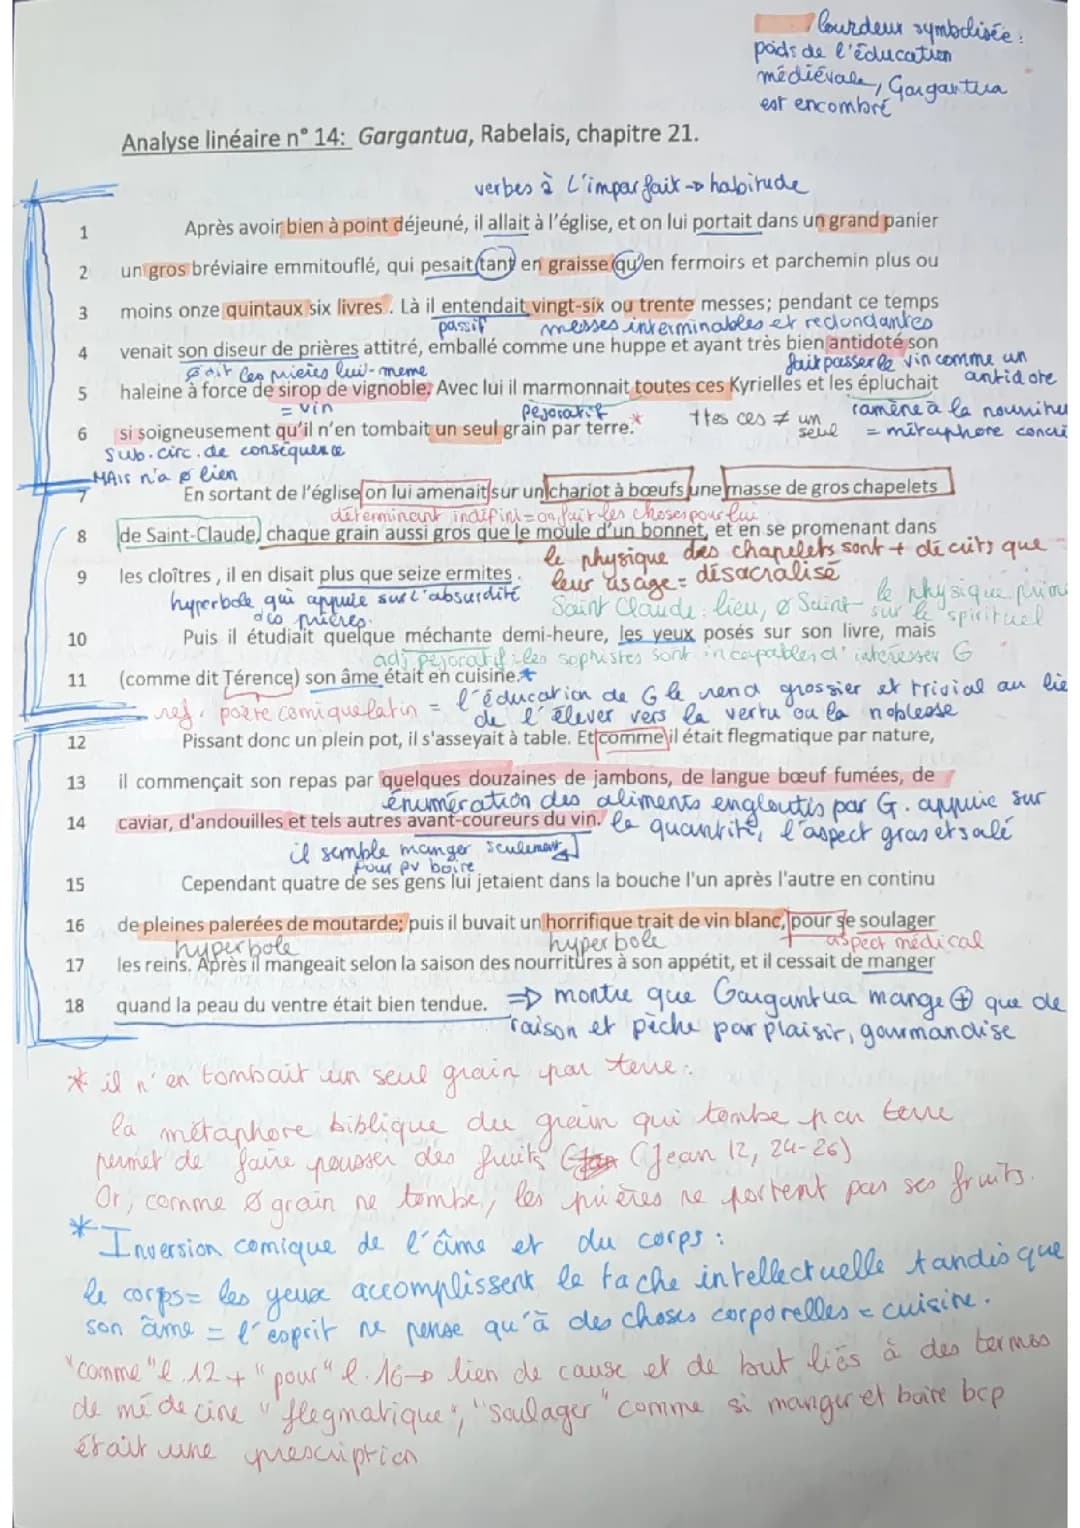 lourdeur symbolisée :
poids de l'éducation
médiévale, Gargantua
est encombré
Analyse linéaire n° 14: Gargantua, Rabelais, chapitre 21.
verbes à l'imparfait → habitude
1 Après avoir bien à point déjeuné, il allait à l'église, et on lui portait dans un grand panier
2 un gros bréviaire emmitouflé, qui pesait tant en graisse qu'en fermoirs et parchemin plus ou
3 moins onze quintaux six livres. Là il entendait vingt-six ou trente messes; pendant ce temps
passif messes interminables et redondantes
4 venait son diseur de prières attitré, emballé comme une huppe et ayant très bien antidoté son
ø dit les prières lui-même fait passer le vin comme un
antidote
5 haleine à force de sirop de vignoble. Avec lui il marmonnait toutes ces Kyrielles et les épluchait
= vin péjoratif ttes ces ≠ un seul ramène à la nourritu
6 si soigneusement qu'il n'en tombait un seul grain par terre.*
= métaphore concrè
sub. circ. de conséquence
MAIS n'a ø lien
7 En sortant de l'église on lui amenait sur un chariot à bœufs une masse de gros chapelets
déterminant indéfini = on fait les choses pour lui
8 de Saint-Claude, chaque grain aussi gros que le moule d'un bonnet, et en se promenant dans
le physique des chapelets sont + décrits que
9 les cloîtres , il en disait plus que seize ermites.
leur usage = désacralisé
hyperbole qui appuie sur l'absurdité
des prières.
Saint Claude : lieu, ø Saint le physique prime
sur le spirituel
10 Puis il étudiait quelque méchante demi-heure, les yeux posés sur son livre, mais
adj péjoratif : les sophistes sont incapables d'intéresser G
11 (comme dit Térence) son âme était en cuisine.*
ref. poète comique latin = l'éducation de G le rend grossier et trivial au lie
de l'élever vers la vertu ou la noblesse
12 Pissant donc un plein pot, il s'asseyait à table. Et comme il était flegmatique par nature,
13 il commençait son repas par quelques douzaines de jambons, de langue bœuf fumées, de
énumération des aliments engloutis par G. appuie sur
14 caviar, d'andouilles et tels autres avant-coureurs du vin.
la quantité, l'aspect gras et salé
il semble manger seulement
pour pv boire
15 Cependant quatre de ses gens lui jetaient dans la bouche l'un après l'autre en continu
16 de pleines palerées de moutarde; puis il buvait un horrifique trait de vin blanc, pour se soulager
hyperbole hyperbole aspect médical
17 les reins. Après il mangeait selon la saison des nourritures à son appétit, et il cessait de manger
18 quand la peau du ventre était bien tendue.
⇒ montre que Gargantua mange ⊕ que de
raison et pèche par plaisir, gourmandise
* il n'en tombait un seul grain par terre :
la métaphore biblique du grain qui tombe par terre
permet de faire pousser des fruits (Jean 12, 24-26)
Or, comme ø grain ne tombe, les prières ne portent pas ses fruits.
* Inversion comique de l'âme et du corps :
le corps = les yeux accomplissent le tache intellectuelle tandis que
son âme = l'esprit ne pense qu'à des choses corporelles = cuisine.
"comme" l.12 + "pour" l.16 → lien de cause et de but liés à des termes
de médecine "flegmatique", "soulager" comme si manger et boire bcp
était une prescription